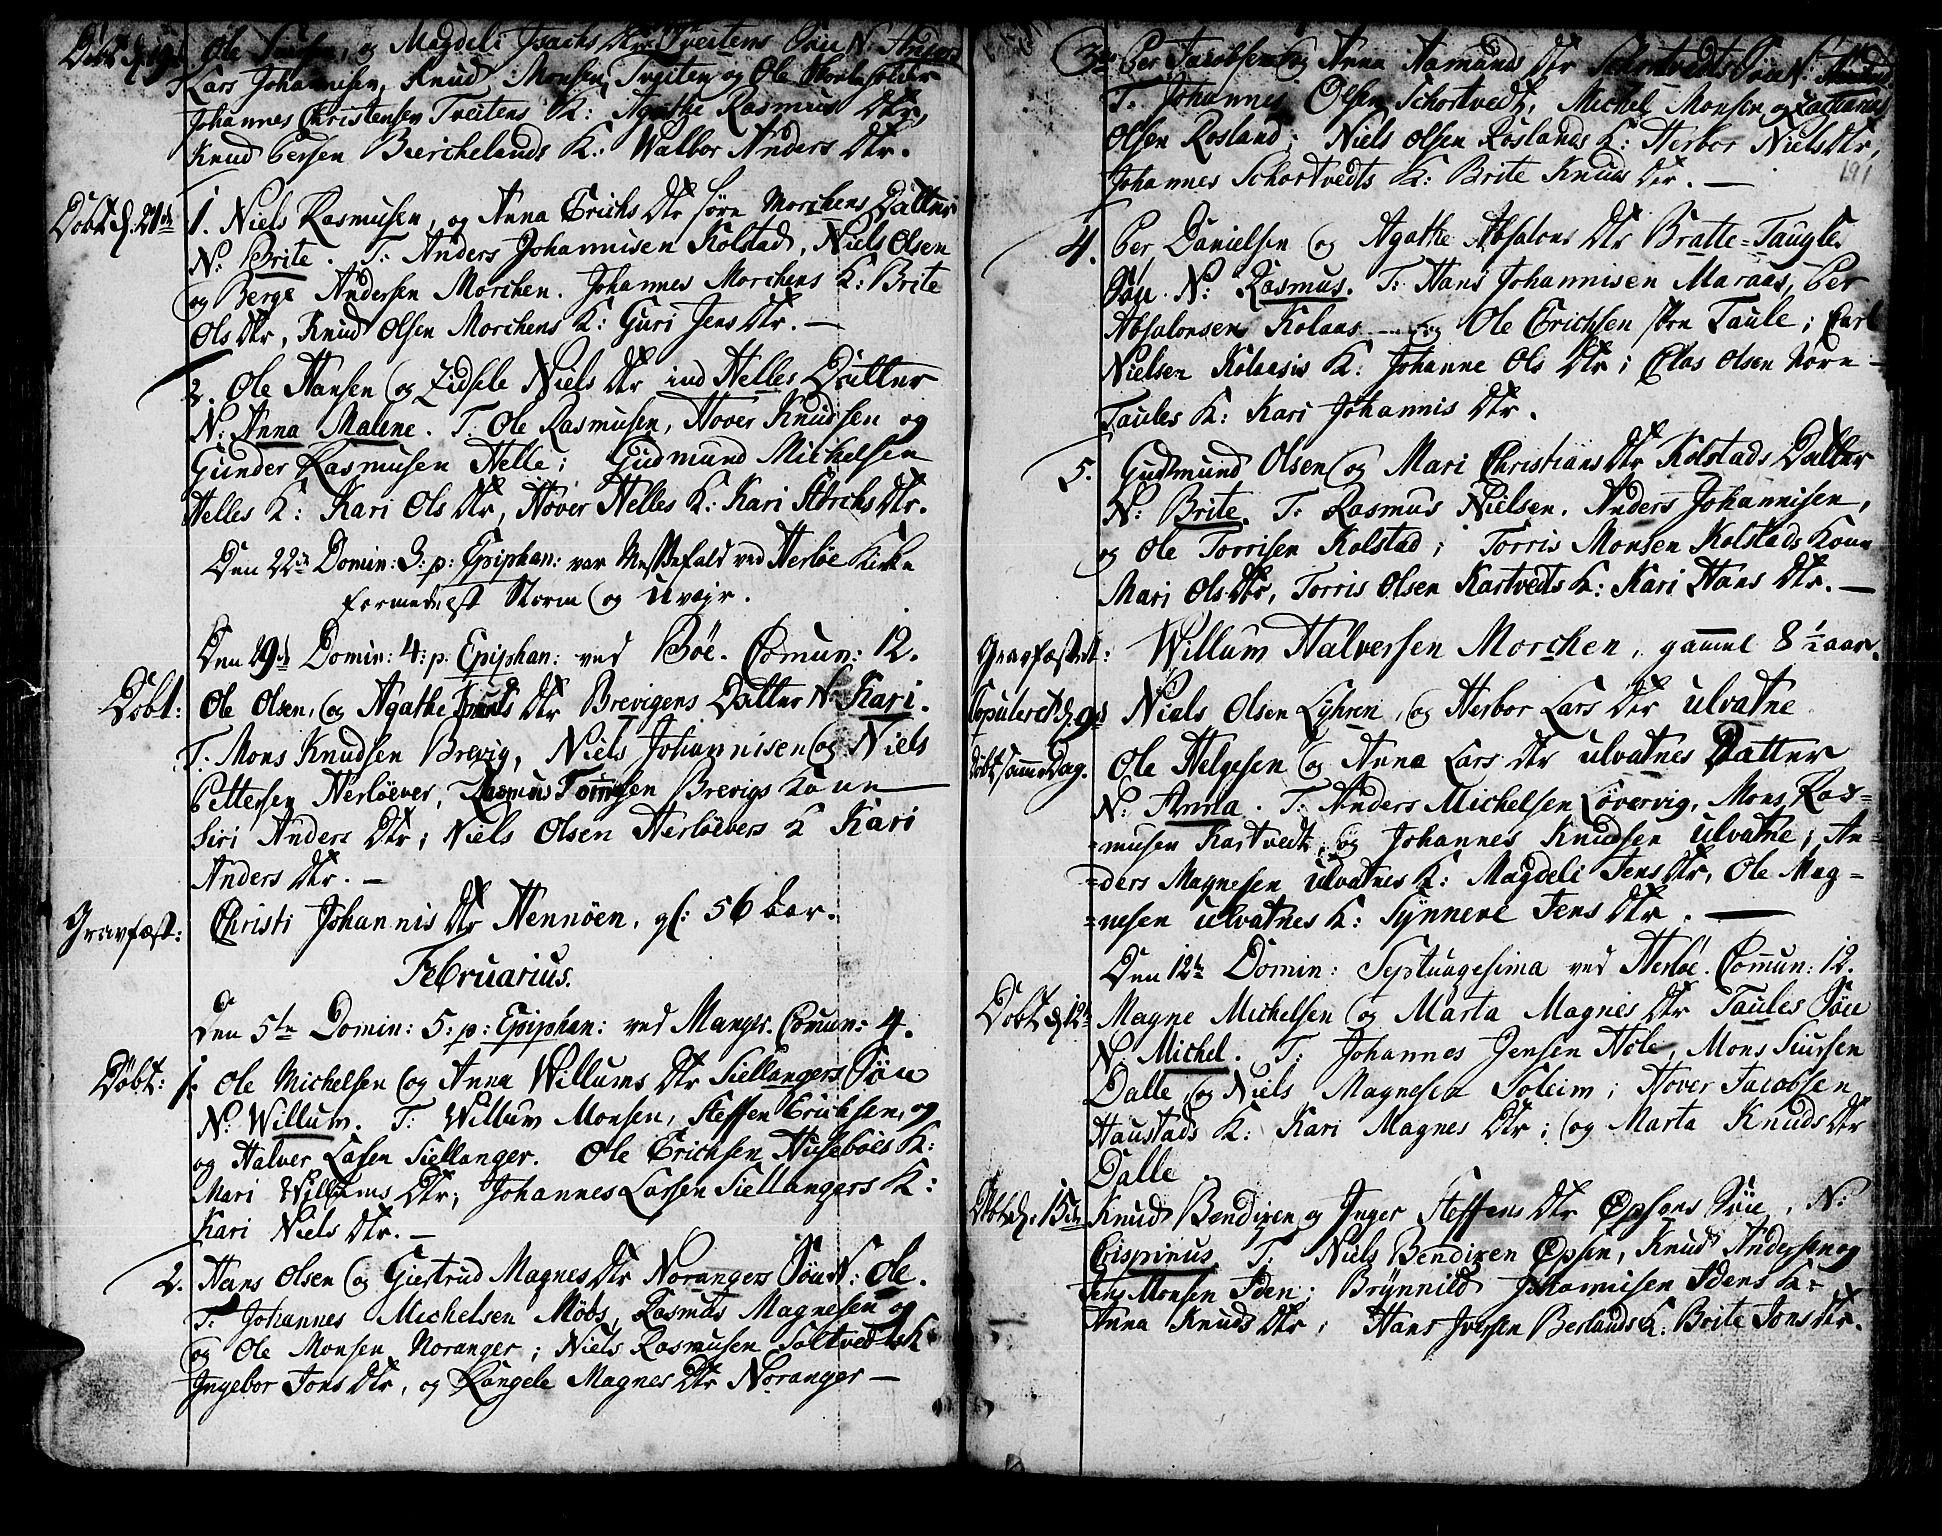 Døbt d. 19. Ole, og Magdeli Isachs Dtr Tveitens Søn N. Anders
Lars Johannisen, Knud Monsen Tveiten og Ole
Johannes Christensen Tveitens K: Agathe Rasmus Dtr,
Knud Persen Berchelands K: Walbor Anders Dtr.
Døbt d. 21de 1. Niels Rasmusen, og Anna Erichs Dtr søre Morchens Datter
N: Brite. T: Anders Johannisen Kolstad, Niels Olsen
og Berge Andersen Morchen. Johannes Morchens K: Brite
Ols Dtr, Knud Olsen Morchens K: Guri Jens Dtr. —
2. Ole Hansen og Zidsele Niels Dtr ind Helles Datter
N: Anna Malene. T. Ole Rasmusen, Hover Knudsen og
Gunder Rasmusen Helle; Gudmund Michelsen
Helles K: Kari Ols Dtr, Hover Helles K: Kari Dtr.
Den 22de Domin: 3. p: Epiphan: var Messefald ved Herløe Kirke
formedelst Storm og Uvejr.
Den 29de Domin: 4: p: Epiphan: ved Bøe. Comun: 12.
Døbt: Ole Olsen, og Agathe Knuds Dtr Brevigens Datter N: Kari.
T. Mons Knudsen Brevig, Niels Johannisen og Niels
Pettersen Herløever, Rasmus Brevigs Kone
Siri Anders Dtr; Niels Olsen Herløevers K Kari
Anders Dtr. —
Gravfæst: Christi Johannis Dtr Hennøen, gl: 56 Aar.
Februarius.
Den 5te Domin: 5: p: Epiphan: ved Manger. Comun: 4.
Døbt: 1. Ole Michelsen og Anna Willums Dtr Siellangers Søn
N: Willum. T: Willum Monsen, Steffen Erichsen, og
og Halver Lasen Siellanger. Ole Erichsen Husebøes K:
Mari Willums Dtr; Johannes Larsen Siellangers K:
Kari Niels Dtr. —
2. Hans Olsen og Giertrud Magnes Dtr Norangers Søn N: Ole.
T. Johannes Michelsen Møbs, Rasmus Magnesen og
og Ole Monsen Noranger; Niels Rasmusen Soltvedts K
Ingebor Jons Dtr, og Rangele Magnes Dtr Noranger —
3de Per Jacobsen og Anna Aamunds Dtr Schortvedts Søn N:
T. Johannes Olsen Schortvedt, Michel Monsen og Zacharias
Olsen Rosland; Niels Olsen Roslands K: Herbor Niels Dtr,
Johannes Schortvedts K: Brite Knuds Dtr. —
191
4. Per Danielsen og Agathe Absalons Dtr Bratte-Taugles
Søn. N: Rasmus. T: Hans Johannisen Maraas, Per
Absalonsen Kolaas — og Ole Erichsen støre Taule; Carl
Nielsen Kolaasis K: Johanne Ols Dtr; Clas Olsen Norn-
Taules K: Kari Johannis Dtr.
5. Gudmund Olsen og Mari Christians Dtr Kolstads Datter
N: Brite. T. Rasmus Nielsen, Anders Johannisen,
og Ole Torrisen Kolstad; Torris Monsen Kolstads Kone
Mari Ols Dtr, Torris Olsen Kartvedts K: Kari Hans Dtr. —
Gravfæstet: Willum Halversen Morchen, gammel 8 1/2 aar.
Copuleret d. 9de Niels Olsen Lyhren, og Herbor Lars Dtr Ulvatne
Døbt samme Dag. Ole Helgesen og Anna Lars Dtr Ulvatnes Datter
N: Anna. T: Anders Michelsen Løvervig, Mons Ras=
=musen Kartvedt, og Johannes Knudsen Ulvatne; An=
=ders Magnesen Ulvatnes K: Magdeli Jens Dtr, Ole Mag=
=nesen Ulvatnes K: Synneve Jens Dtr. —
Den 12te Domin: Septuagesima ved Herløe. Comun: 12.
Døbt d. 12te Magne Michelsen og Marta Magnes Dtr Taules Søn
N: Michel. T: Johannes Jensen Hole, Mons Siursen
Dalle, og Niels Magnesen Soleim; Hover Jacobsen
Haustads K: Kari Magnes Dtr; og Marta Knuds Dtr
Dalle
Døbt d. 15de Knud Bendixen og Inger Steffens Dtr Øpsens Søn, N:
Crispinus. T. Niels Bendixen Øpsen, Knud Andersen og
Jens Monsen Iden; Brynnild Johannisen Idens K:
Anna Knuds Dtr; Hans Iversen Berlands K: Brite Jons Dtr.